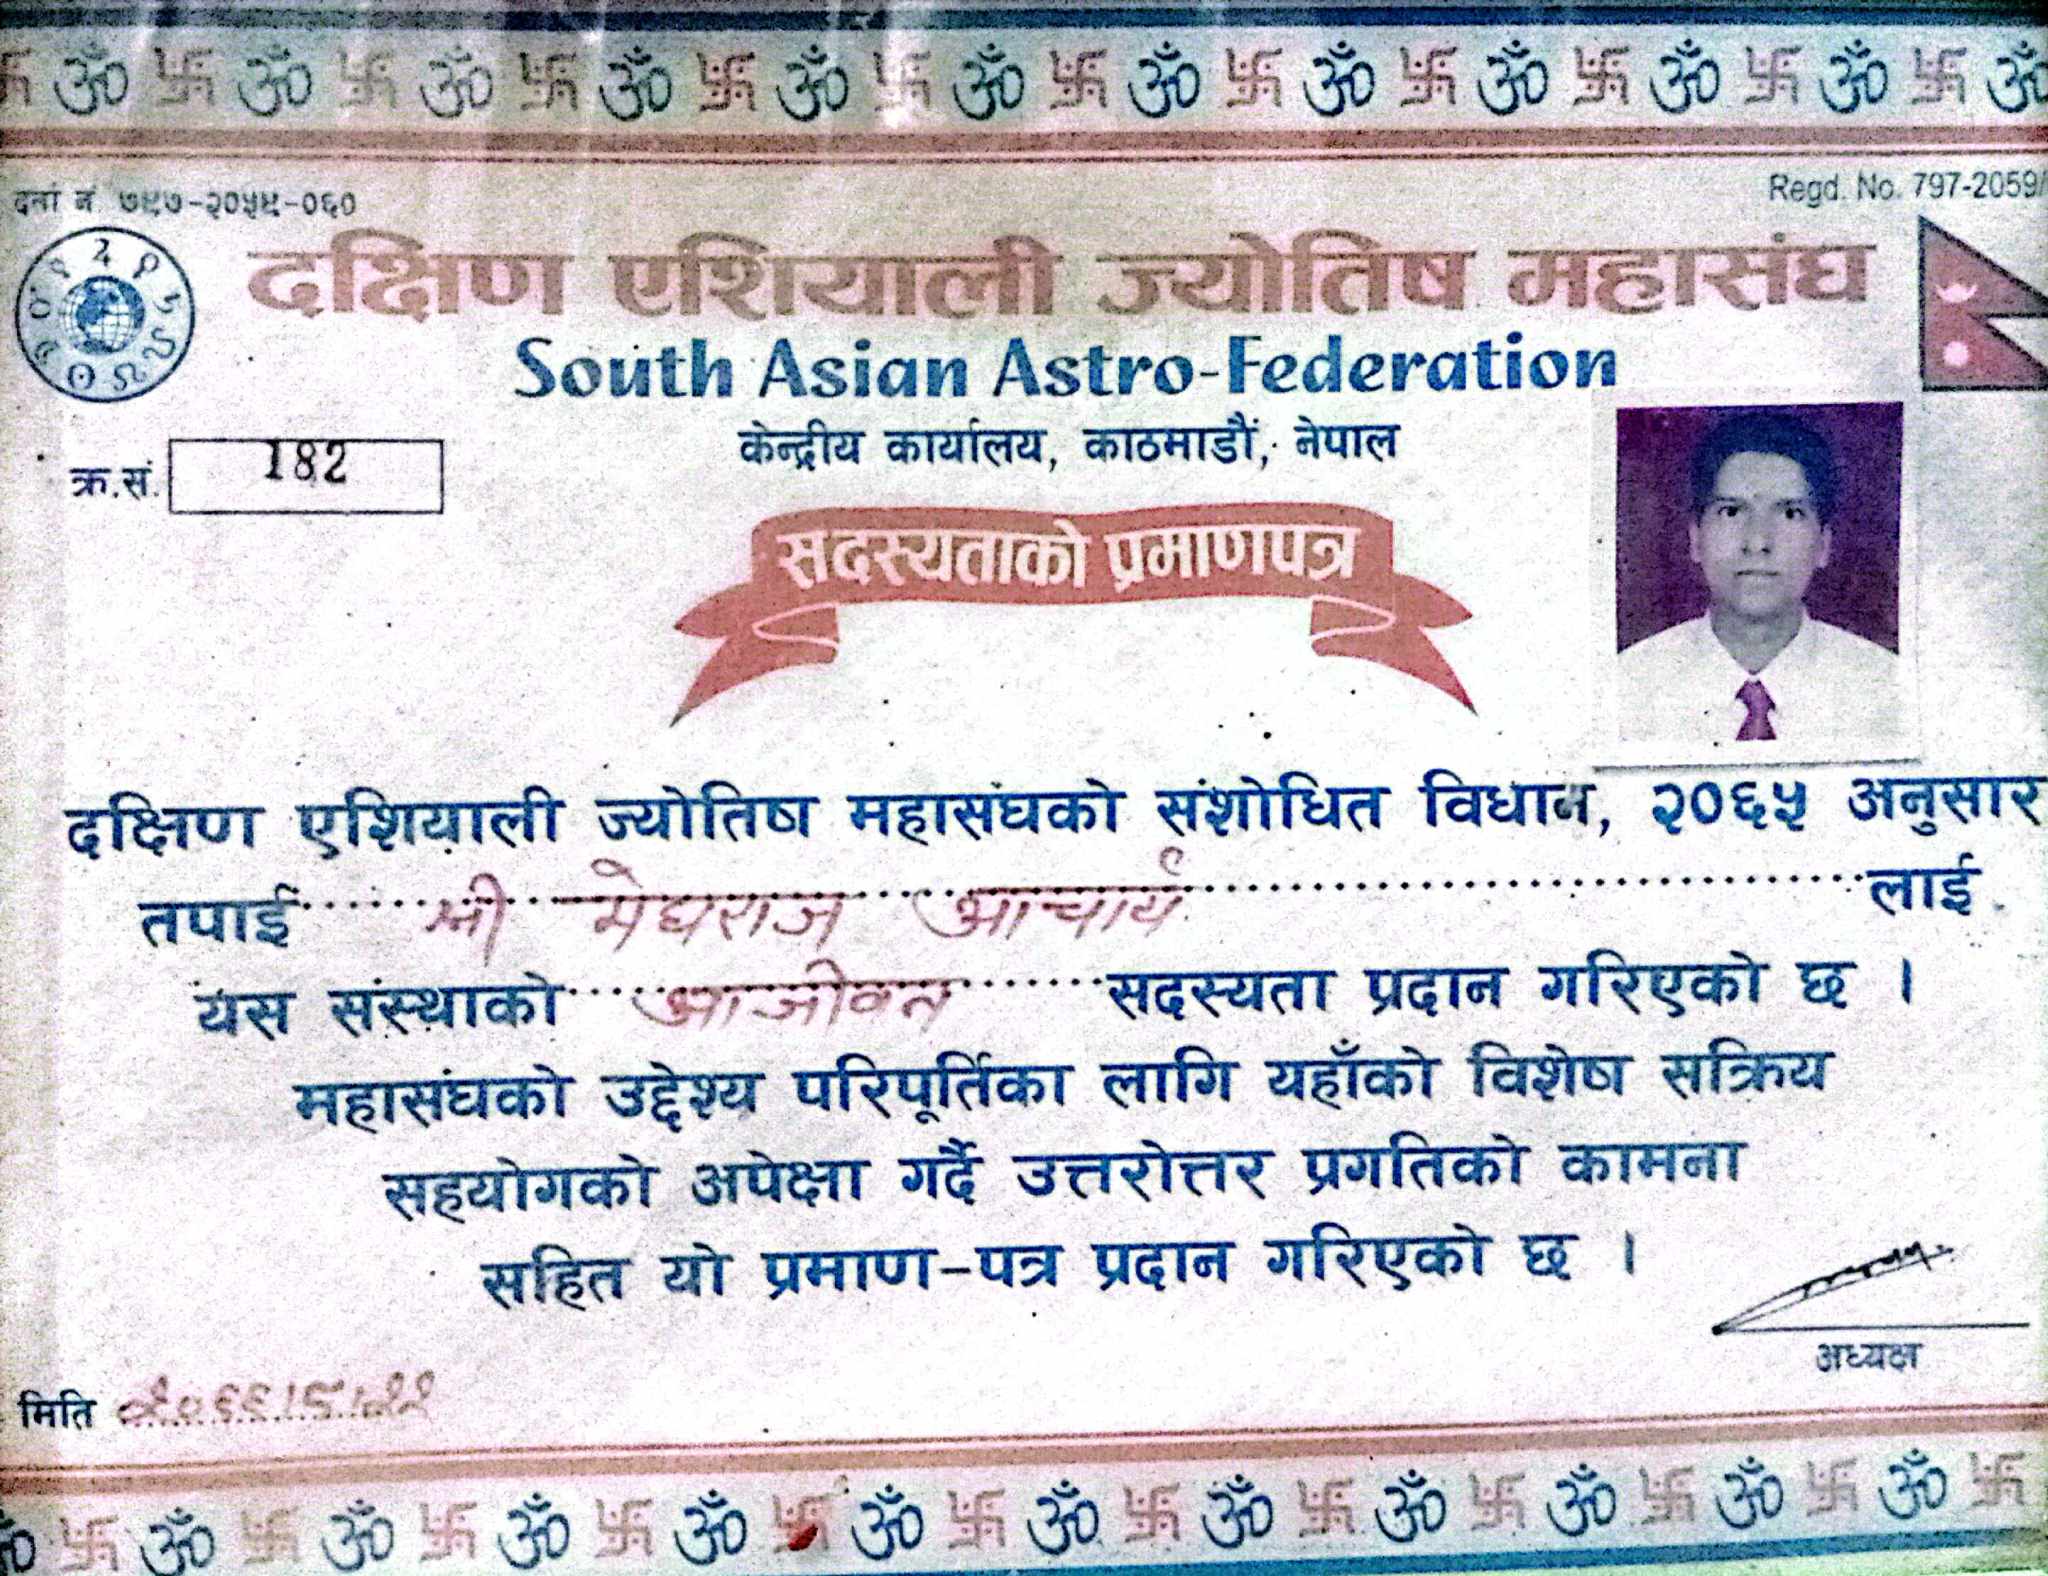 दर्ता नं. ७९७-२०५९-०६०
Regd. No. 797-2059/
दक्षिण एशियाली ज्योतिष महासंघ
South Asian Astro-Federation
केन्द्रीय कार्यालय, काठमाडौं, नेपाल
क्र.सं. 182
सदस्यताको प्रमाणपत्र
दक्षिण एशियाली ज्योतिष महासंघको संशोधित विधान, २०६५ अनुसार
तपाई श्री मेघराज आचार्य लाई
यस संस्थाको आजीवन सदस्यता प्रदान गरिएको छ ।
महासंघको उद्देश्य परिपूर्तिका लागि यहाँको विशेष सक्रिय
सहयोगको अपेक्षा गर्दै उत्तरोत्तर प्रगतिको कामना
सहित यो प्रमाण-पत्र प्रदान गरिएको छ ।
अध्यक्ष
मिति